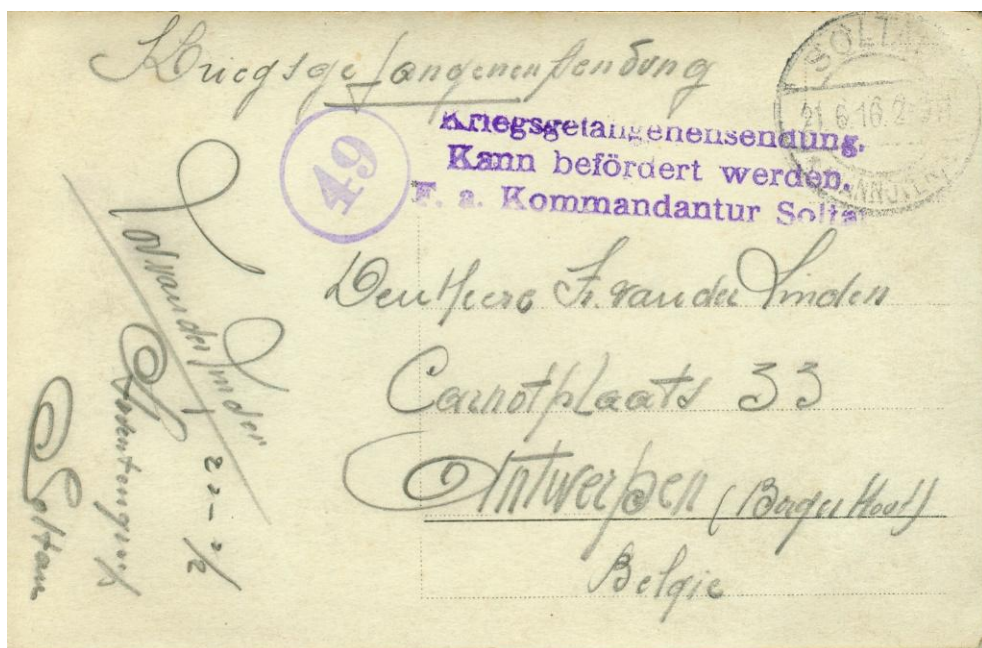 Kriegsgefangenensendung
SOLTAU
21.6.16.2-3N
(HANNOVER)
49
Kriegsgefangenensendung.
Kann befördert werden.
F. a. Kommandantur Soltau
Den Heere Fr. van der Linden
Carnotplaats 33
Antwerpen (Borgerhout)
Belgie
van der Linden
Soltau